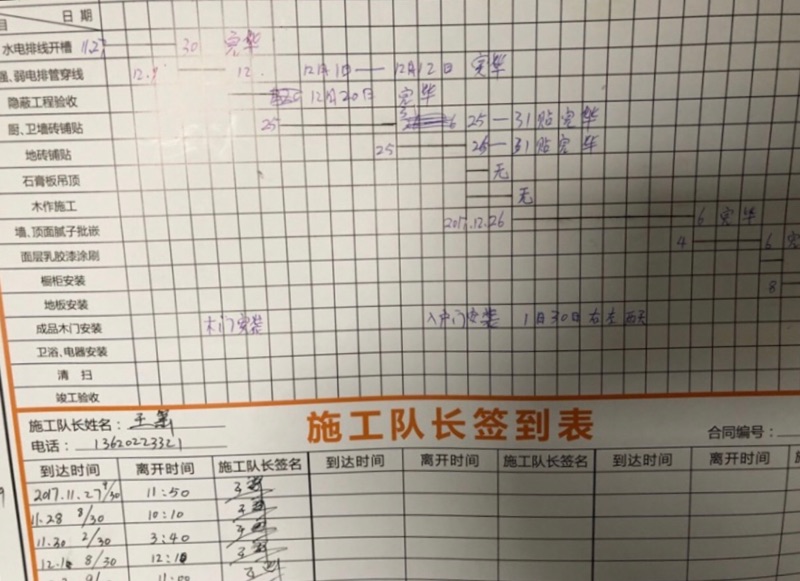 日期
目
水电排线开槽 11.27 30 完毕
强、弱电排管穿线 12.9 12. 12月1日 12月12日 完毕
隐蔽工程验收 12月20日 完毕
厨、卫墙砖铺贴 25 25—31贴完毕
地砖铺贴 25 25—31贴完毕
石膏板吊顶 无
木作施工 无
墙、顶面腻子批嵌 2017.12.26 6 完毕
面层乳胶漆涂刷 4 6 完
橱柜安装 8
地板安装
成品木门安装 木门安装 入户门安装 1月30日右左
卫浴、电器安装
清扫
竣工验收
施工队长姓名： 王
施工队长签到表
电话： 13620223321
合同编号：
到达时间 离开时间 施工队长签名 到达时间 离开时间 施工队长签名 到达时间 离开时间
2017.11.27 9/30 11:50
11.28 8/30 10:10
11.30 2/30 3:40
12.1 8/30 12:10
11:00